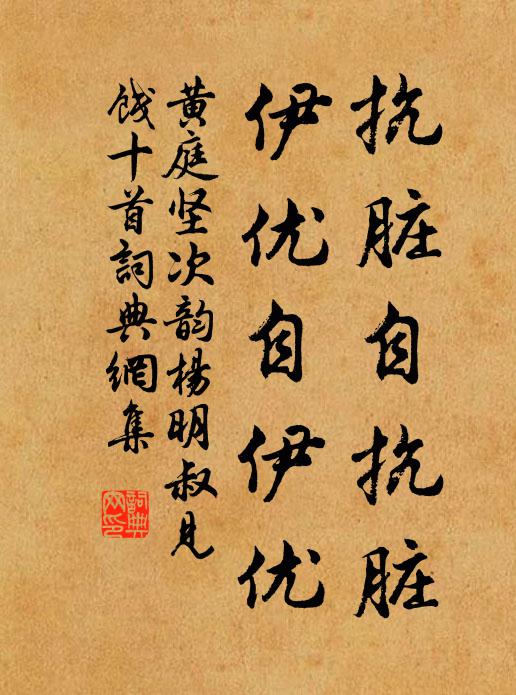 抗脏自抗脏
伊优自伊优
黄庭坚次韵杨明叔见
饯十首詞典網集
詞典網印